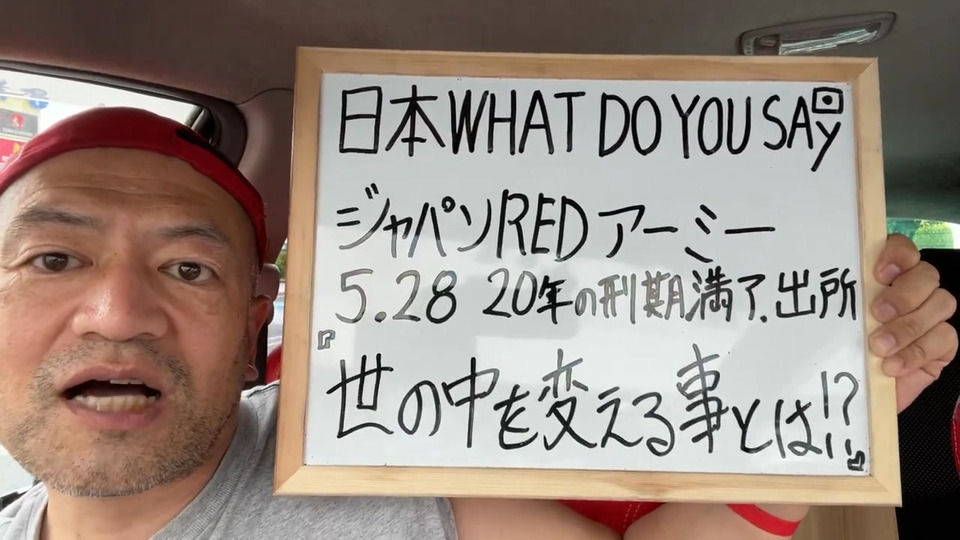 日本WHAT DO YOU SAY
ジャパンREDアーミー
5.28 20年の刑期満了、出所
『世の中を変える事とは!?』